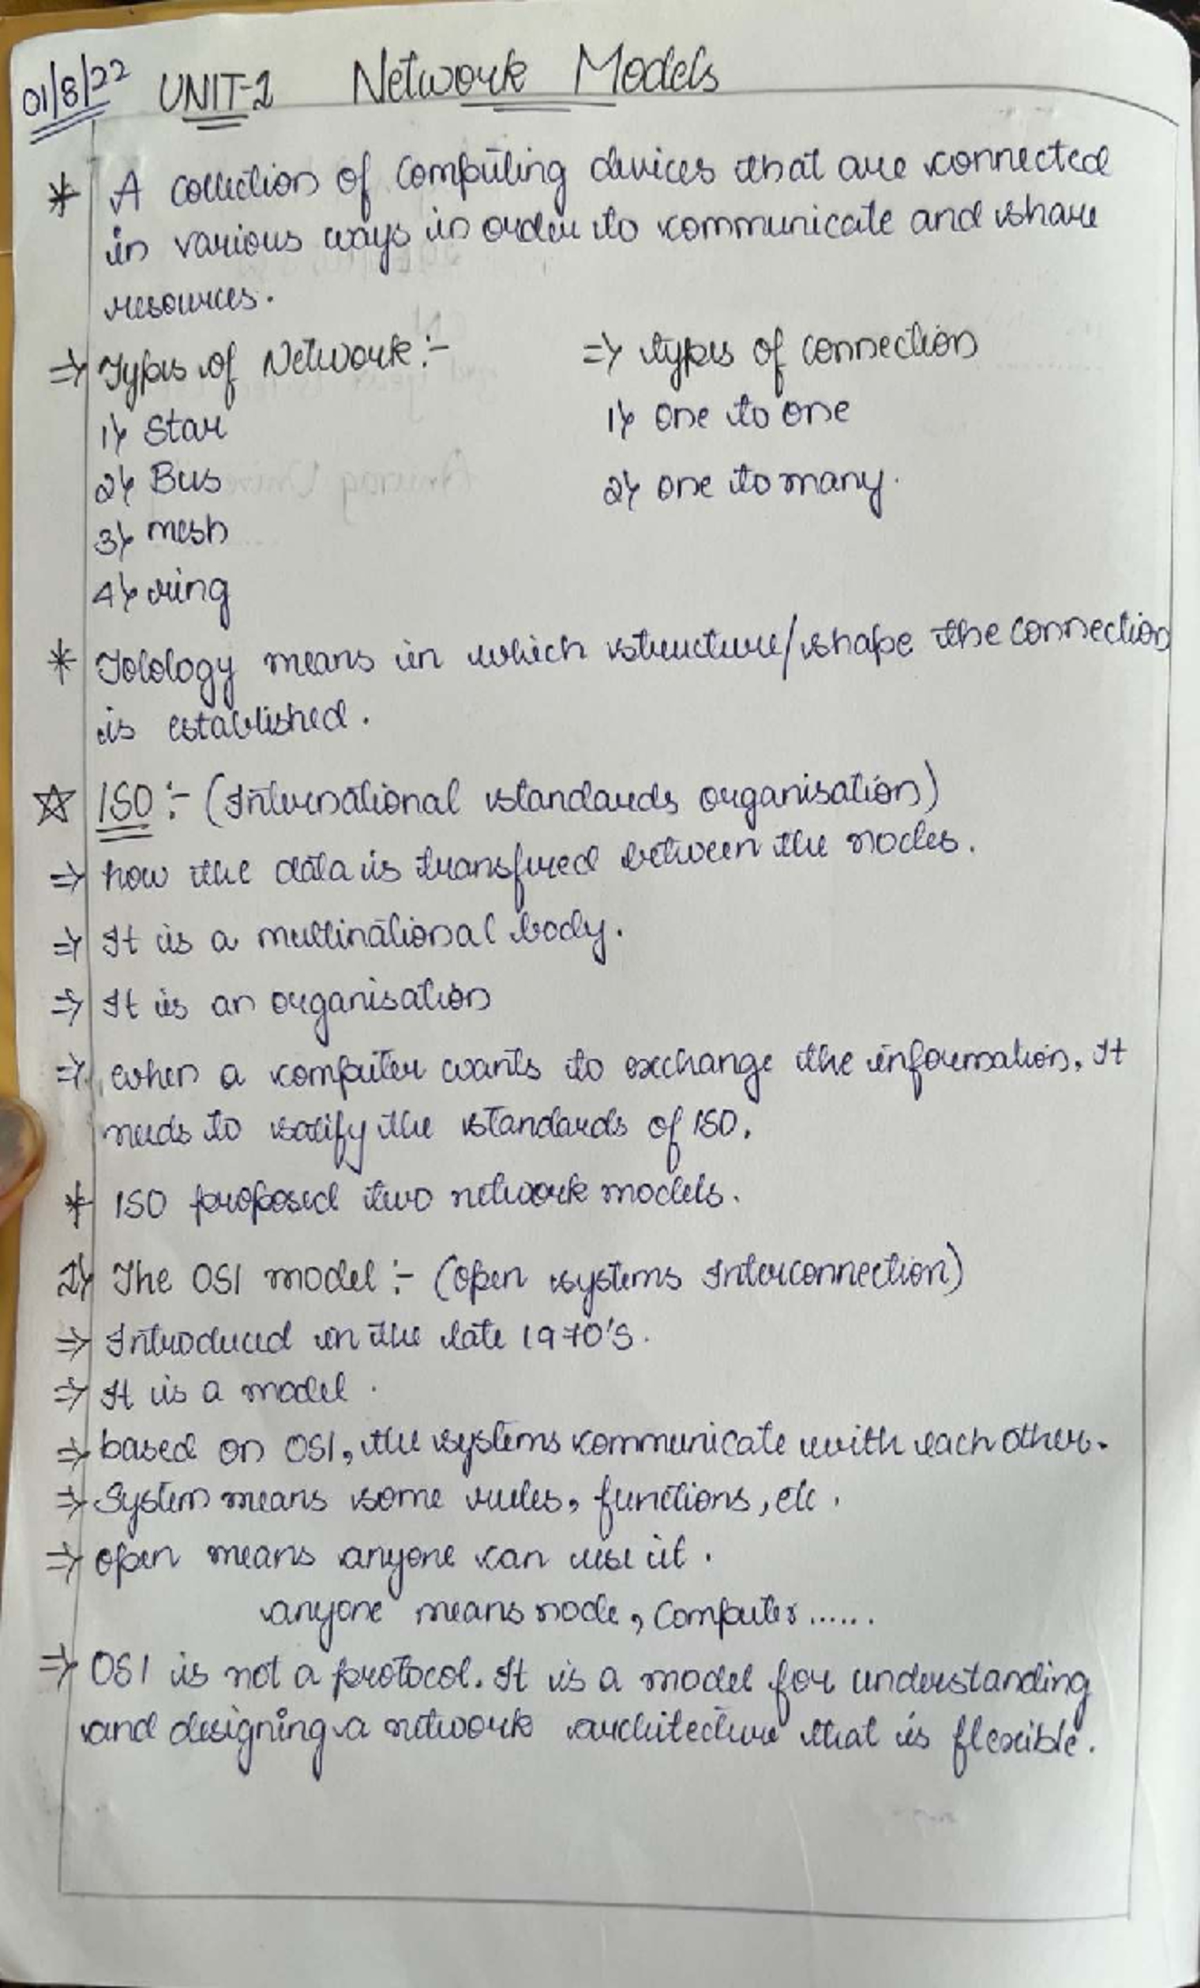 01/8/22 UNIT-1 Network Models
* A collection of computing devices that are connected
in various ways in order to communicate and share
resources.
=> Types of Network :- => types of connection
1) Star 1) one to one
2) Bus 2) one to many.
3) mesh
4) ring
* Tolology means in which structure/shape the connection
is established.
☆ ISO :- (International standards organisation)
=> how the data is transfired between the nodes.
=> It is a multinational body.
=> It is an organisation
=> when a computer wants to exchange the information, It
needs to satify the standards of ISO.
* ISO proposed two network models.
1) The OSI model :- (open systems Interconnection)
=> Introduced in the late 1970's.
=> It is a model.
=> based on OSI, the systems communicate with each other.
=> System means some rules, functions, etc.
=> open means anyone can use it.
anyone means node, computer......
=> OSI is not a protocol. It is a model for understanding
and designing a network architecture that is flexible.